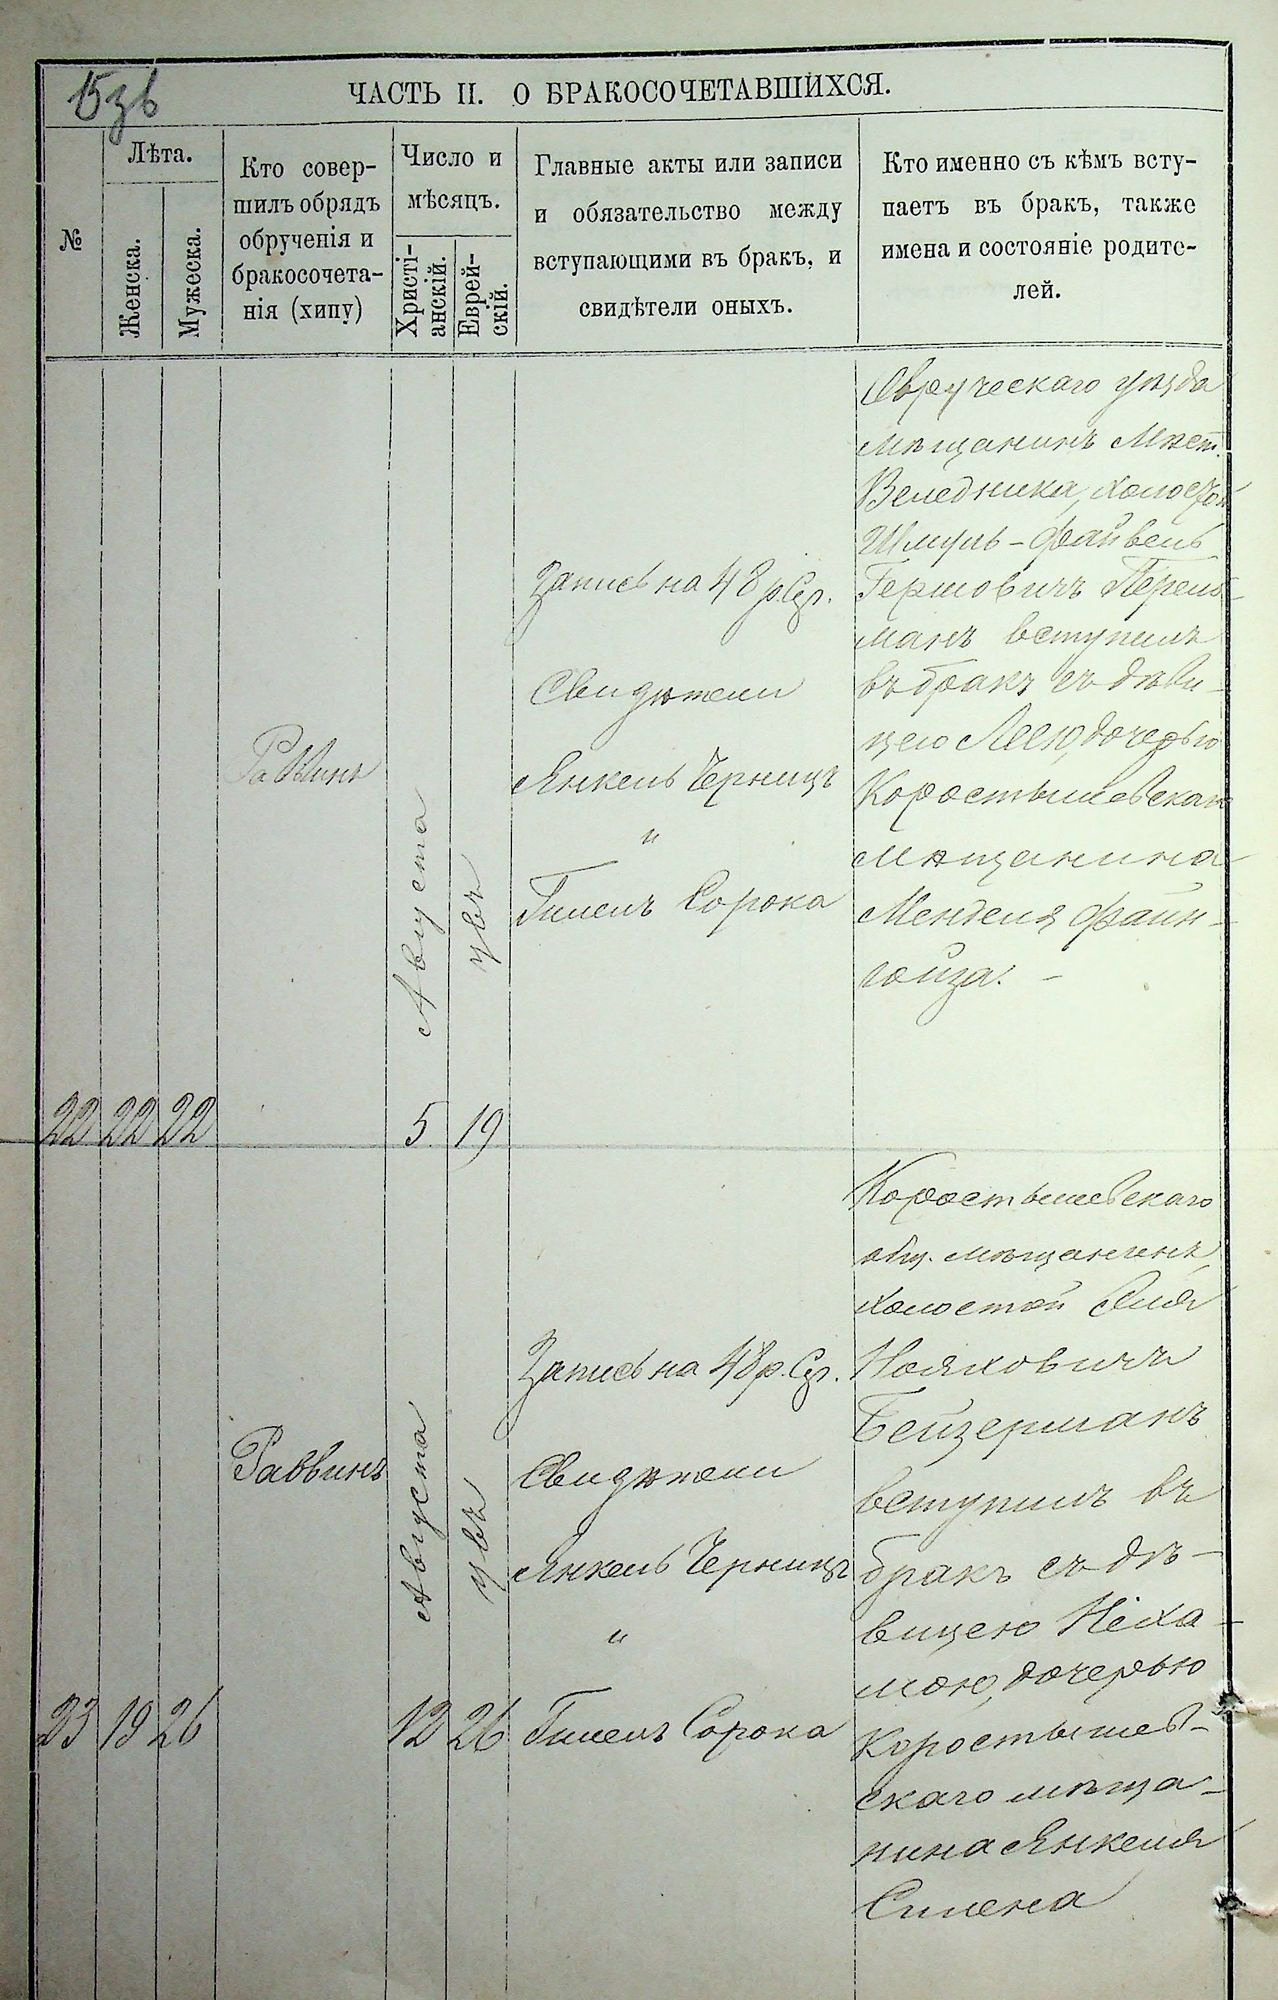 ЧАСТЬ II. О БРАКОСОЧЕТАВШИХСЯ.
№
Лѣта.
Женска.
Мужеска.
Кто совер-
шилъ обрядъ
обрученія и
бракосочета-
нія (хипу)
Число и
мѣсяцъ.
Христі-
анскій.
Еврей-
скій.
Главные акты или записи
и обязательство между
вступающими въ бракъ, и
свидѣтели оныхъ.
Кто именно съ кѣмъ всту-
паетъ въ бракъ, также
имена и состояніе родите-
лей.
22 22 22
Раввинъ
Августа
5
19
Запись на 48 р. Сер.
Свидѣтели
Янкель Черницъ
"
Гилель Сорока
Овручскаго уѣзда
мѣщанинъ Мѣст.
Веледника, холостой
Шмуль-Файвель
Гершовичъ Перель-
манъ вступилъ
въ бракъ съ дѣви-
цею Леею, дочерью
Коростышевскаго
мѣщанина
Менделя Файн-
гойза. -
23 19 26
Раввинъ
Августа
12
26
Запись на 48 р. Сер.
Свидѣтели
Янкель Черницъ
"
Гилель Сорока
Коростышевскаго
общ. мѣщанинъ,
холостой Эля
Нояховичъ
Бейзерманъ
вступилъ въ
бракъ съ дѣ-
вицею Неха-
мою, дочерью
Коростышев-
скаго мѣща-
нина Янкеля